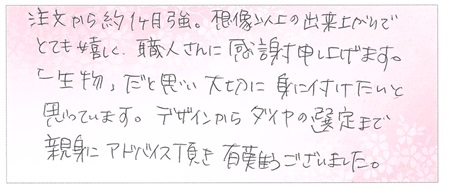 注文から約1ヶ月強。想像以上の出来上がりで
とても嬉しく、職人さんに感謝申し上げます。
「一生物」だと思い大切に身に付けたいと
思っています。デザインからダイヤの選定まで
親身にアドバイス頂き有難うございました。